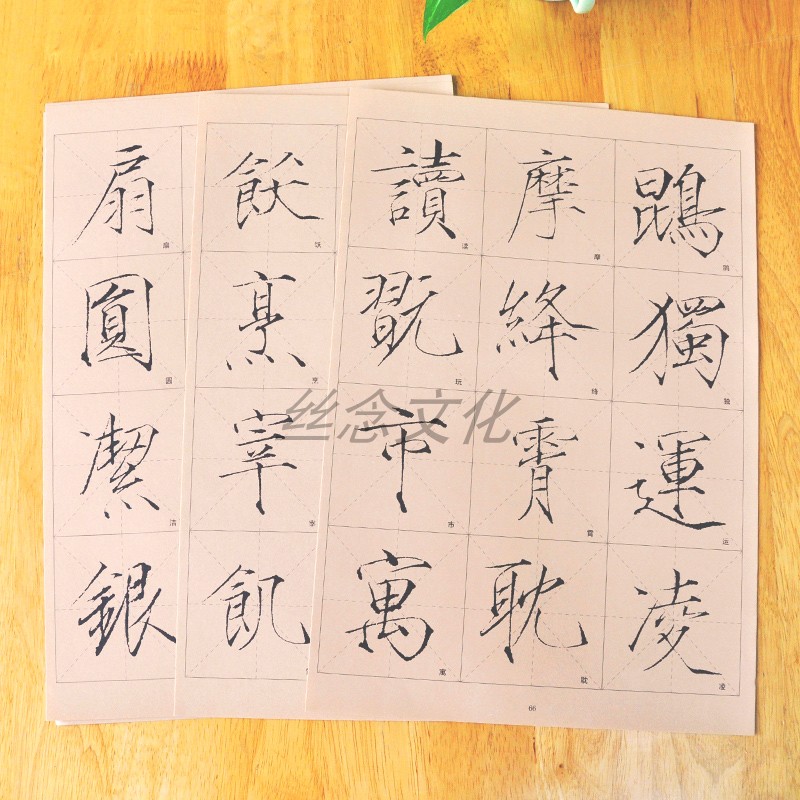 鵾獨運凌
摩絳霄耽
讀翫市寓
飫烹宰飢
扇圓潔銀
运
凌
摩
绛
霄
耽
读
玩
市
寓
烹
宰
扇
圆
洁
66
丝念文化